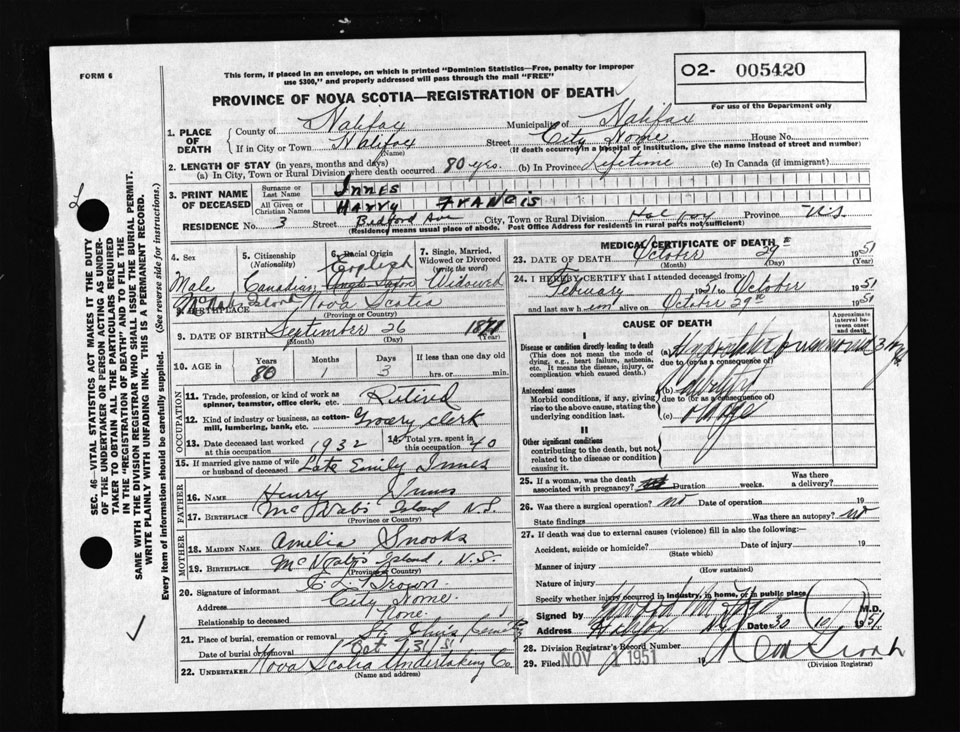 FORM 6
This form, if placed in an envelope, on which is printed "Dominion Statistics—Free, penalty for improper
use $300," and properly addressed will pass through the mail "FREE"
O2- 005420
For use of the Department only
PROVINCE OF NOVA SCOTIA—REGISTRATION OF DEATH
1. PLACE OF DEATH
County of Halifax Municipality of Halifax
If in City or Town Halifax (Name) Street City Home House No.
(If death occurred in a hospital or institution, give the name instead of street and number)
2. LENGTH OF STAY (in years, months and days)
(a) In City, Town or Rural Division where death occurred 80 yrs. (b) In Province Lifetime (c) In Canada (if immigrant)
3. PRINT NAME OF DECEASED
Surname or Last Name INNES
All Given or Christian Names HARRY FRANCIS
RESIDENCE No. 3 Street Bedford Ave City, Town or Rural Division Halifax Province N.S.
(Residence means usual place of abode. Post Office Address for residents in rural parts not sufficient)
4. Sex
Male
5. Citizenship (Nationality)
Canadian
6. Racial Origin
English
7. Single, Married, Widowed or Divorced (write the word)
Widowed
8. BIRTHPLACE McNabs Island Nova Scotia
(Province or Country)
9. DATE OF BIRTH September 26 1871
(Month) (Day)
10. AGE in Years 80 Months Days 3 If less than one day old hrs. or min.
OCCUPATION
11. Trade, profession, or kind of work as spinner, teamster, office clerk, etc. Retired
12. Kind of industry or business, as cotton-mill, lumbering, bank, etc. Grocery clerk
13. Date deceased last worked at this occupation 1932
14. Total yrs. spent in this occupation 40
15. If married give name of wife or husband of deceased Late Emily Innes
FATHER
16. Name Henry Innes
17. Birthplace McNab's Island N.S.
(Province or Country)
MOTHER
18. Maiden Name Amelia Snooks
19. Birthplace McNab's Island, N.S.
(Province or Country)
20. Signature of informant C. L. Brown
Address City Home
Relationship to deceased None
21. Place of burial, cremation or removal
Date of burial or removal Oct 31/51
22. UNDERTAKER Nova Scotia Undertaking Co.
(Name and address)
MEDICAL CERTIFICATE OF DEATH
23. DATE OF DEATH October 1951
(Month) (Day) (Year)
24. I HEREBY CERTIFY that I attended deceased from
February 1951 to October 1951
and last saw him alive on October 29th 1951
CAUSE OF DEATH
Approximate interval between onset and death
I
Disease or condition directly leading to death
(This does not mean the mode of dying, e.g., heart failure, asthenia, etc. It means the disease, injury, or complication which caused death.)
(a) Hypostatic pneumonia 3
due to (or as a consequence of)
Antecedent causes
Morbid conditions, if any, giving rise to the above cause, stating the underlying condition last.
(b)
due to (or as a consequence of)
(c)
II
Other significant conditions contributing to the death, but not related to the disease or condition causing it.
25. If a woman, was the death associated with pregnancy? Duration weeks. Was there a delivery?
26. Was there a surgical operation? no Date of operation 19
State findings Was there an autopsy? no
27. If death was due to external causes (violence) fill in also the following:—
Accident, suicide or homicide? Date of injury 19
(State which)
Manner of injury
(How sustained)
Nature of injury
Specify whether injury occurred in industry, in home, or in public place
Signed by M.D.
Address Halifax NS Date 30/10/1951
28. Division Registrar's Record Number
29. Filed NOV 1 1951 19
(Division Registrar)
SEC. 46—VITAL STATISTICS ACT MAKES IT THE DUTY
OF THE UNDERTAKER OR PERSON ACTING AS UNDER-
TAKER TO OBTAIN ALL THE PARTICULARS REQUIRED
IN THE "REGISTRATION OF DEATH" AND TO FILE THE
SAME WITH THE DIVISION REGISTRAR WHO SHALL ISSUE THE BURIAL PERMIT.
WRITE PLAINLY WITH UNFADING INK. THIS IS A PERMANENT RECORD.
Every item of information should be carefully supplied. (See reverse side for instructions.)